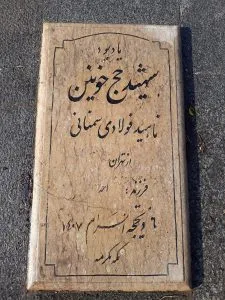 یادبود
شهید حج خونین
ناهید فولادی سمنانی
از تهران
فرزند: احمد
۶ ذیحجه الحرام ۱۴۰۷
مکه مکرمه